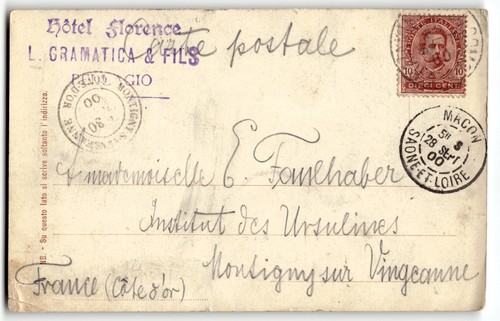 Hôtel Florence
L. GRAMATICA & FILS
Carte postale
MONTIGNY-S-VINGEANNE
COTE D'OR
30
00
DIECI CENT.
10 10
MACON
5E
28 SEPT
00
SAONE-ET-LOIRE
Mademoiselle E. Faulhaber
Institut des Ursulines
Montigny sur Vingeanne
France (Côte d'or)
NB. - Su questo lato si scrive soltanto l'indirizzo.